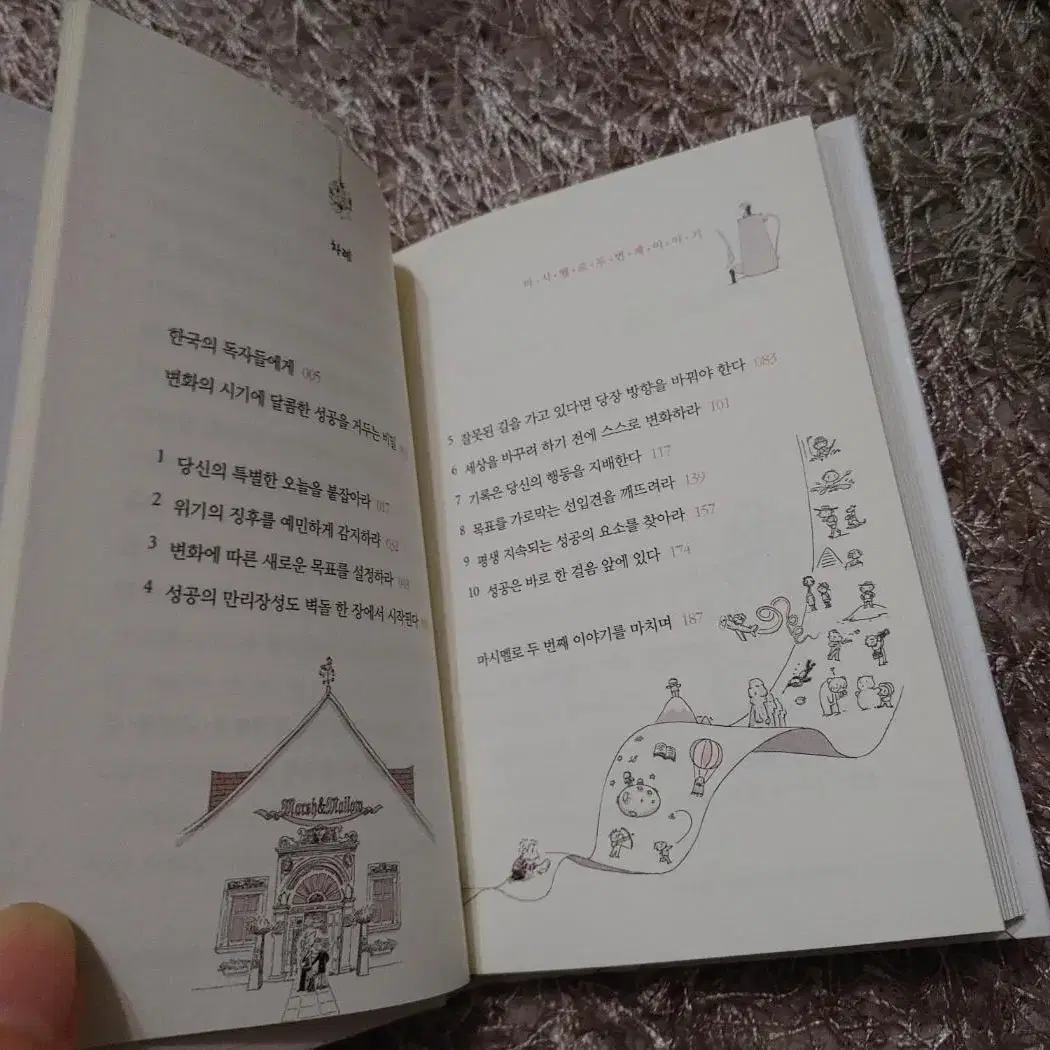 차례
한국의 독자들에게 005
변화의 시기에 달콤한 성공을 거두는 비밀
1 당신의 특별한 오늘을 붙잡아라 017
2 위기의 징후를 예민하게 감지하라
3 변화에 따른 새로운 목표를 설정하라
4 성공의 만리장성도 벽돌 한 장에서 시작된다
Marsh&Mallow
마·시·멜·로·두·번·째·이·야·기
5 잘못된 길을 가고 있다면 당장 방향을 바꿔야 한다 083
6 세상을 바꾸려 하기 전에 스스로 변화하라 101
7 기록은 당신의 행동을 지배한다 117
8 목표를 가로막는 선입견을 깨뜨려라 139
9 평생 지속되는 성공의 요소를 찾아라 157
10 성공은 바로 한 걸음 앞에 있다 174
마시멜로 두 번째 이야기를 마치며 187